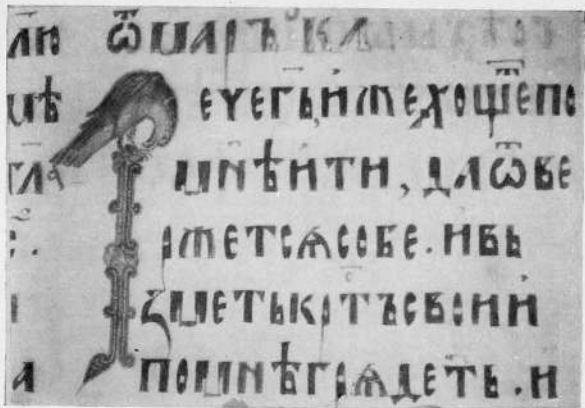 ли ѿ маръ к л
мѣ Рече г҃ь, иже хощеⷮ по
гл҃а мнѣ ити, да ѿве
ржетсѧ собе. и вь
ꙁметь крⷭтъ свои и
а по мнѣ грѧдеть. и